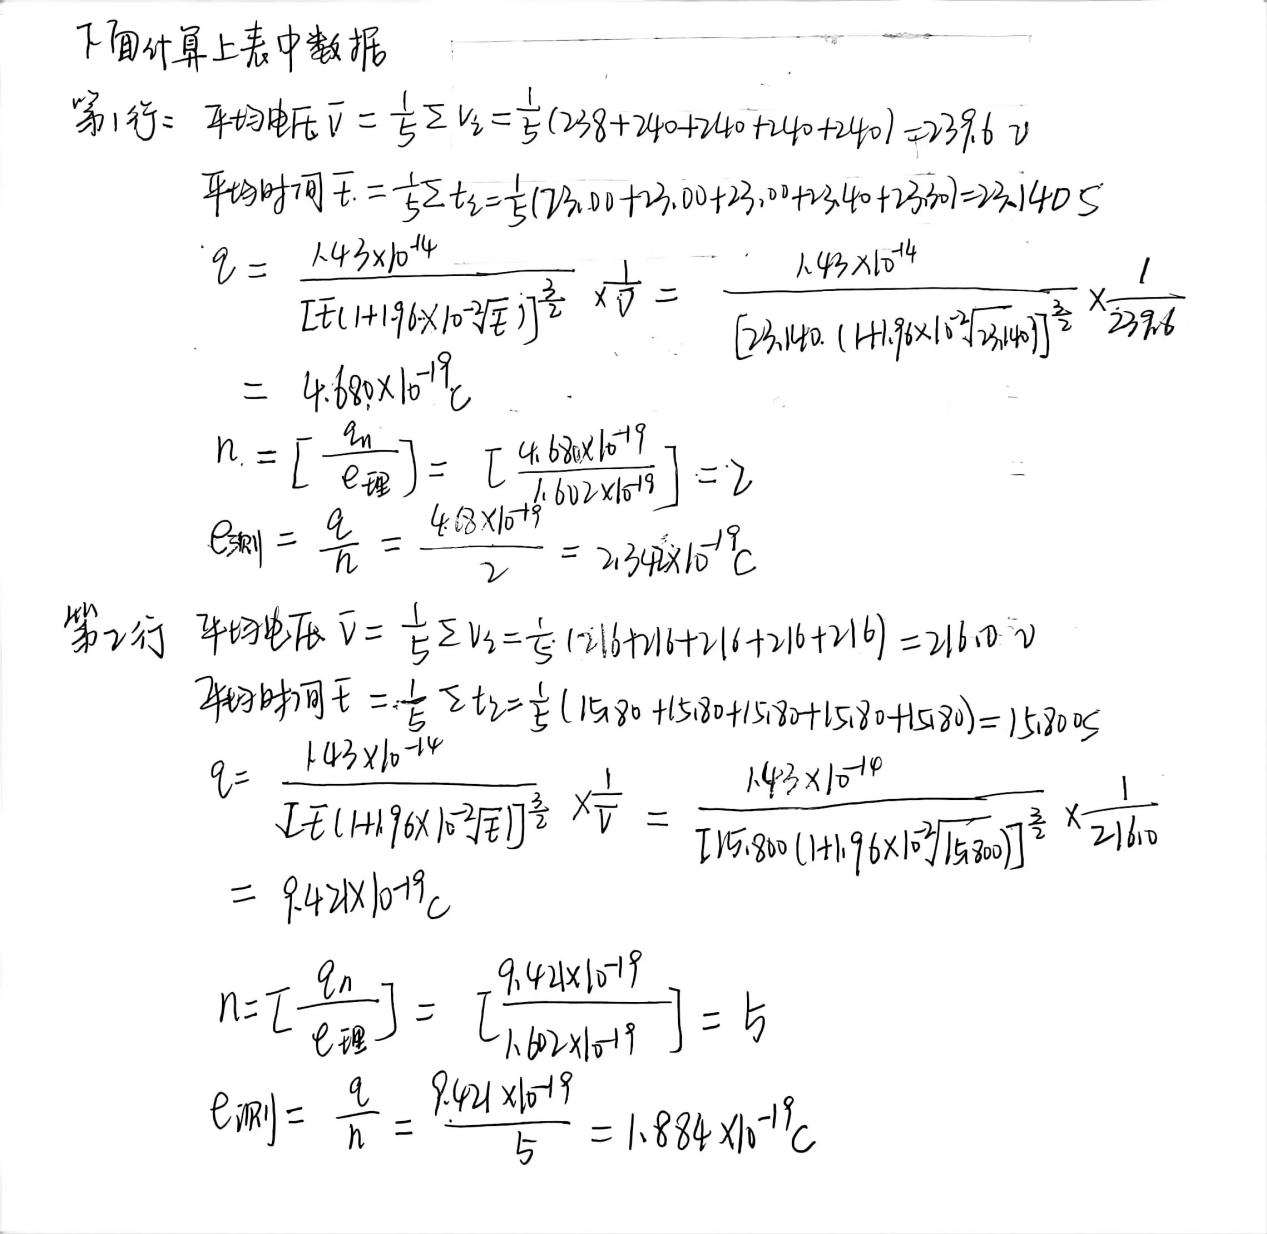 下面计算上表中数据
第1行: 平均电压 V̄ = 1/5 Σ Vi = 1/5 (238+240+240+240+240) = 239.6 V
平均时间 t̄ = 1/5 Σ ti = 1/5 (23.00+23.00+23.00+23.40+23.30) = 23.140 S
q = 1.43×10^-14 / [t̄(1+1.96×10^-2 √t̄)]^3/2 × 1/V̄ = 1.43×10^-14 / [23.140.(1+1.96×10^-2 √23.140)]^3/2 × 1/239.6
= 4.680×10^-19 C
n. = [qn/e理] = [4.680×10^-19 / 1.602×10^-19] = 2
e测 = q/n = 4.68×10^-19 / 2 = 2.342×10^-19 C
第2行 平均电压 V̄ = 1/5 Σ Vi = 1/5 (216+216+216+216+216) = 216.0 V
平均时间 t̄ = 1/5 Σ ti = 1/5 (15.80+15.80+15.80+15.80+15.80) = 15.800S
q = 1.43×10^-14 / [t̄(1+1.96×10^-2 √t̄)]^3/2 × 1/V̄ = 1.43×10^-14 / [15.800(1+1.96×10^-2 √15.800)]^3/2 × 1/216.0
= 9.421×10^-19 C
n = [qn/e理] = [9.421×10^-19 / 1.602×10^-19] = 5
e测 = q/n = 9.421×10^-19 / 5 = 1.884×10^-19 C